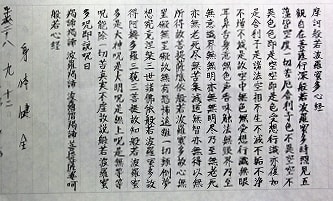 摩訶般若波羅蜜多心経
観自在菩薩行深般若波羅蜜多時照見五
蘊皆空度一切苦厄舎利子色不異空空不
異色色即是空空即是色受想行識亦復如
是舎利子是諸法空相不生不滅不垢不浄
不増不減是故空中無色無受想行識無眼
耳鼻舌身意無色声香味触法無眼界乃至
無意識界無無明亦無無明尽乃至無老死
亦無老死尽無苦集滅道無智亦無得以無
所得故菩提薩埵依般若波羅蜜多故心無
罣礙無罣礙故無有恐怖遠離一切顛倒夢
想究竟涅槃三世諸仏依般若波羅蜜多故
得阿耨多羅三藐三菩提故知般若波羅蜜
多是大神呪是大明呪是無上呪是無等等
呪能除一切苦真実不虚故説般若波羅蜜
多呪即説呪曰
羯諦羯諦波羅羯諦波羅僧羯諦菩提薩婆呵
般若心経
身体健全
二八 九 十二